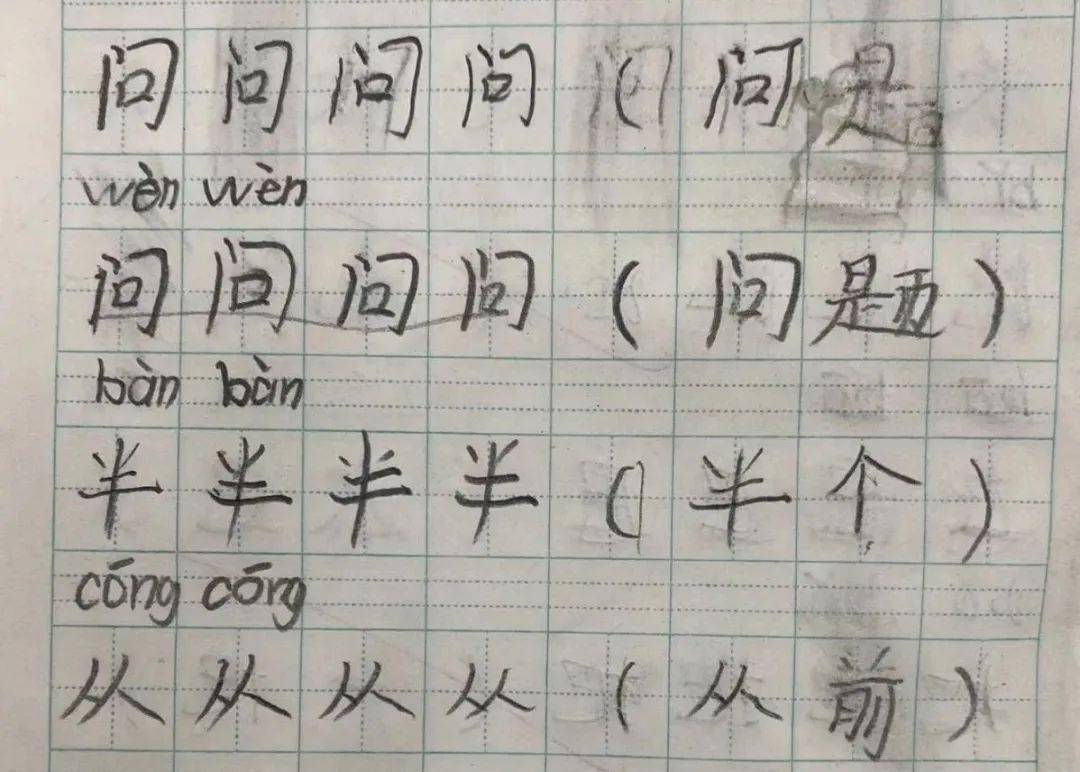 问 问 问 问 ( 问
wèn wèn
问 问 问 问 ( 问 题 )
bàn bàn
半 半 半 半 ( 半 个 )
cōng cōng
从 从 从 从 ( 从 前 )